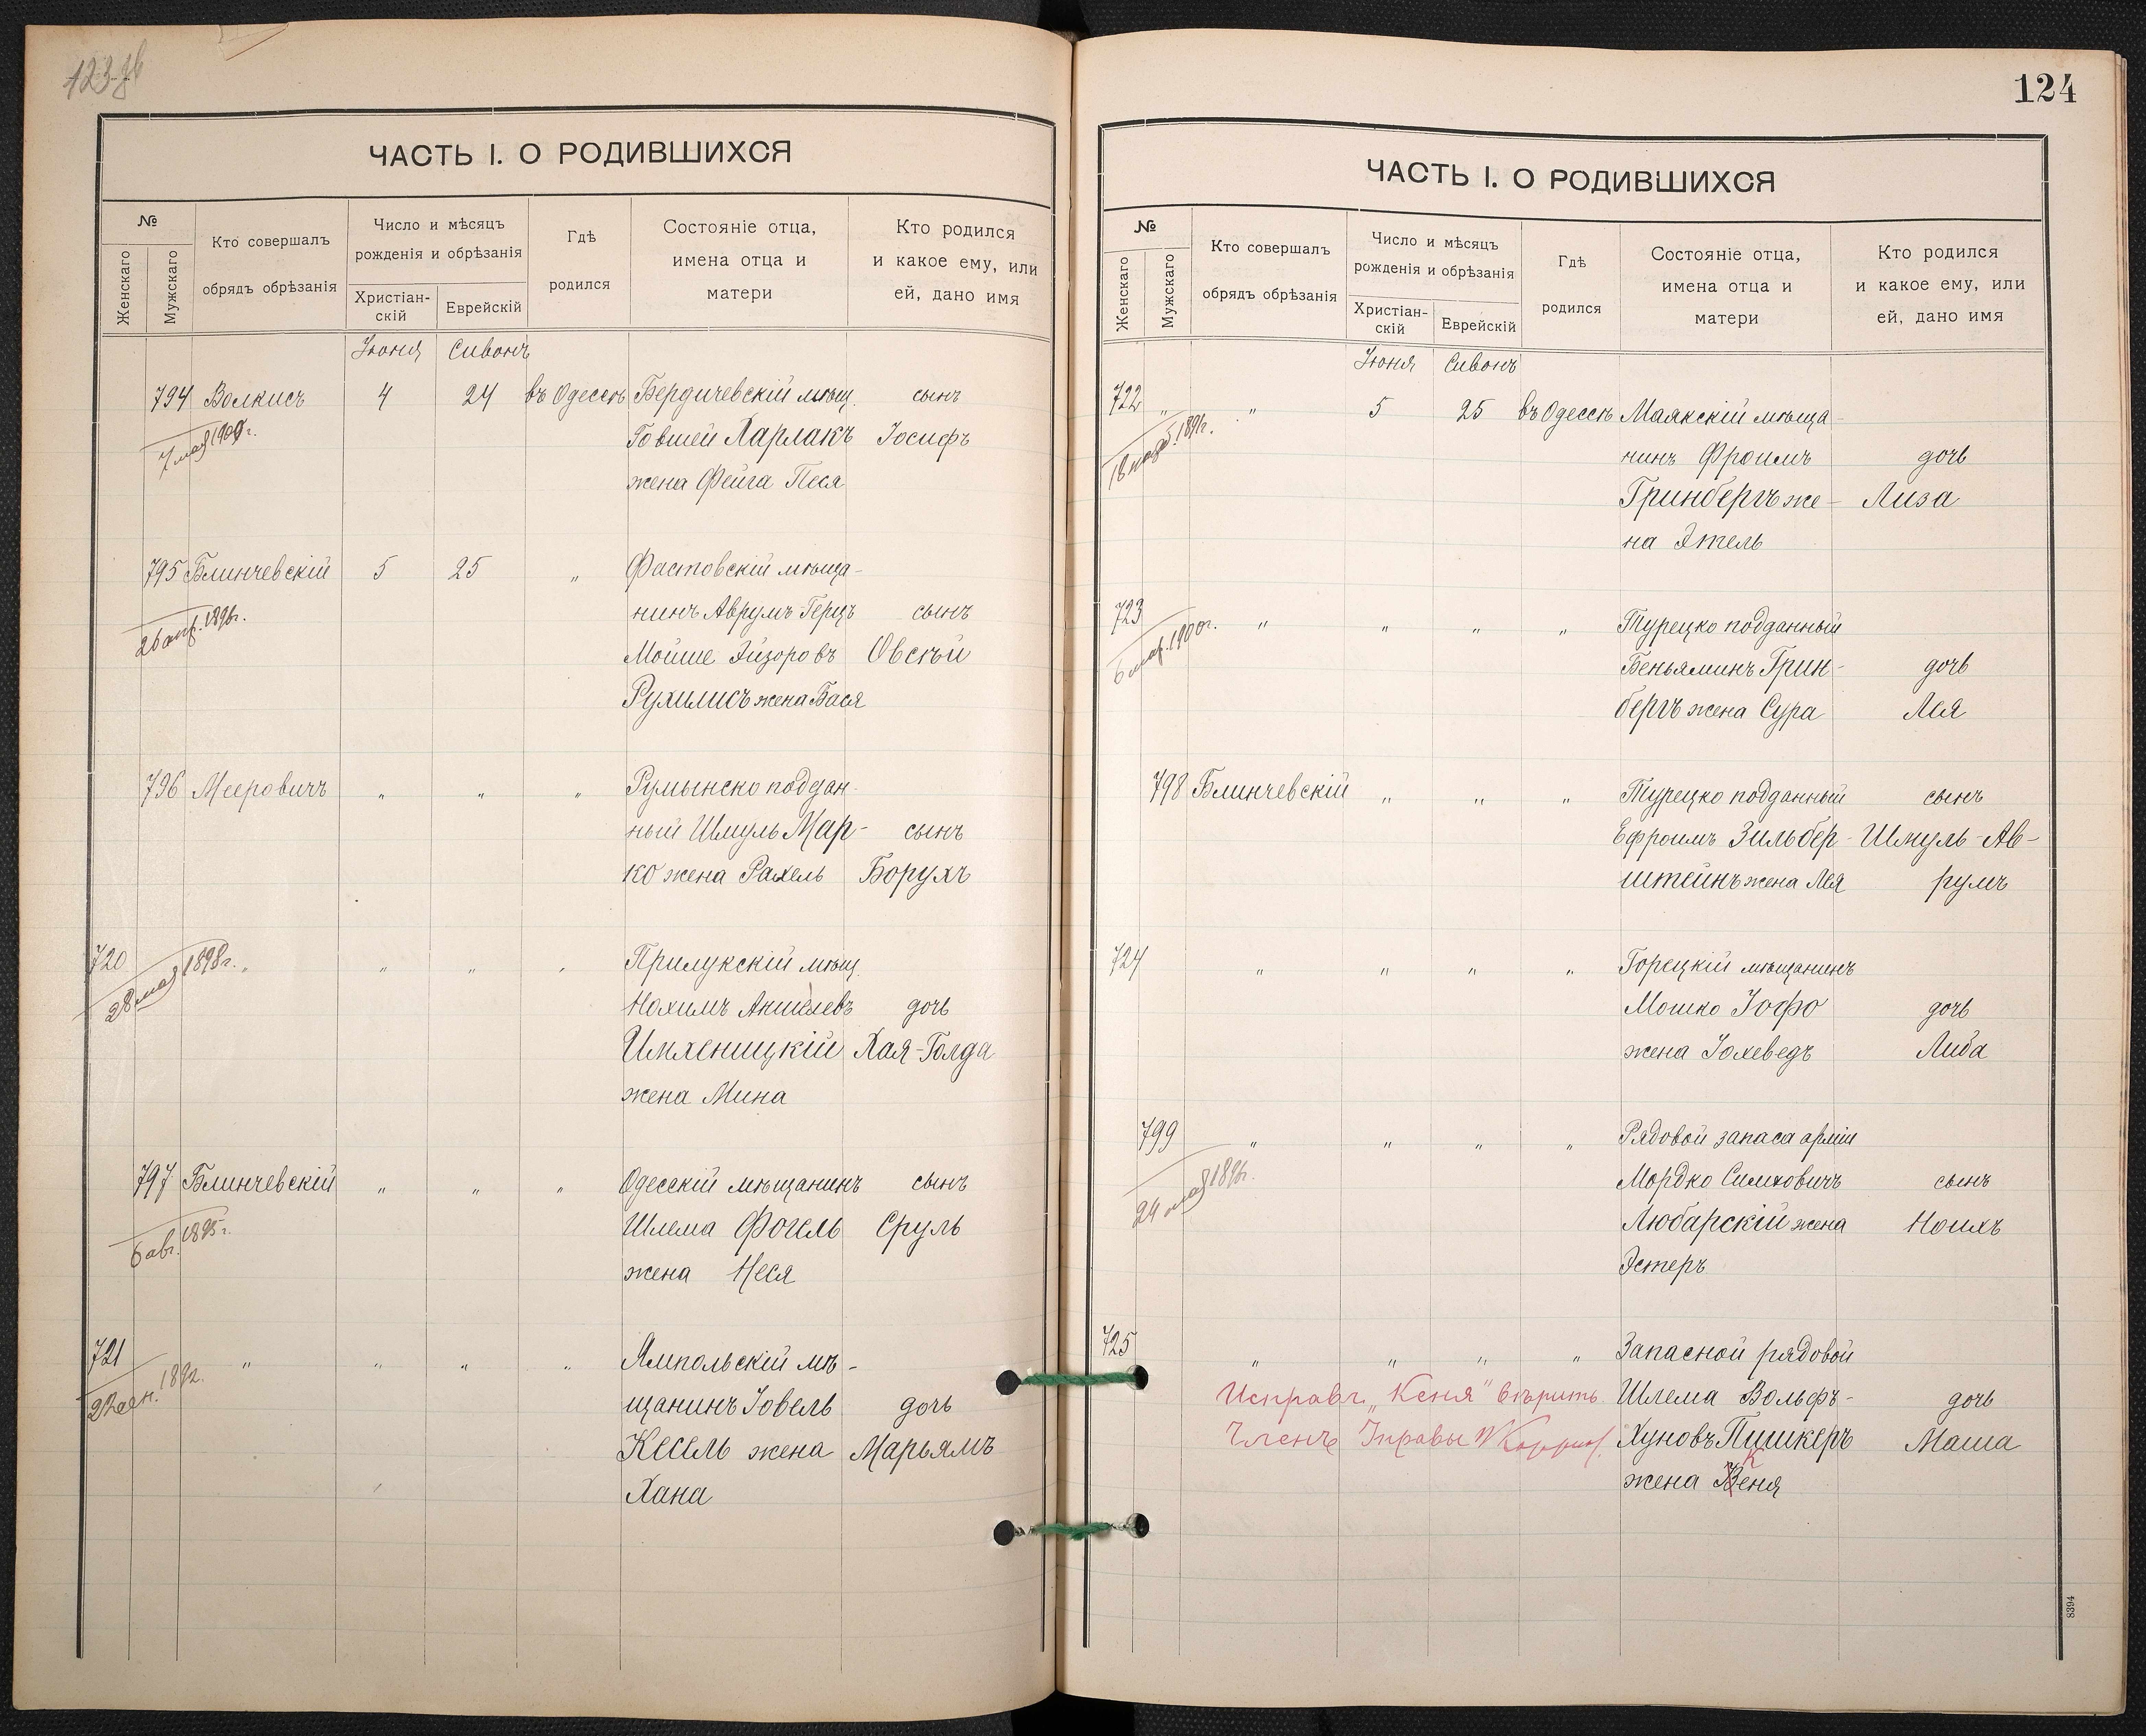 123 об
ЧАСТЬ I. О РОДИВШИХСЯ
№
Женскаго
Мужскаго
Кто совершалъ
обрядъ обрѣзанія
Число и мѣсяцъ
рожденія и обрѣзанія
Христіан-
скій
Еврейскій
Гдѣ
родился
Состояніе отца,
имена отца и
матери
Кто родился
и какое ему, или
ей, дано имя
Іюня Сивонъ
794 Волкисъ 4 24 въ Одессѣ Бердичевскій мѣщ. сынъ
7 мая 1909г. Говшей Харлакъ Іосифъ
жена Фейга Песя
795 Блинчевскій 5 25 " Фастовскій мѣща-
26 апр. 1896г. нинъ Аврумъ Герцъ сынъ
Мойше Эйзоровъ Овсѣй
Рухилисъ жена Бася
796 Мееровичъ " " " Румынско поддан-
ный Шмуль Мар- сынъ
ко жена Рахель Борухъ
720 " " " " Прилукскій мѣщ.
28 мая 1898г. Нохимъ Аншелевъ дочь
Имхеницкій Хая-Голда
жена Мина
797 Блинчевскій " " " Одесскій мѣщанинъ сынъ
6 авг. 1895г. Шлема Фогель Сруль
жена Неся
721 " " " " Ямпольскій мѣ-
1892г. щанинъ Іовель дочь
Кесель жена Марьямъ
Хана
124
ЧАСТЬ I. О РОДИВШИХСЯ
№
Женскаго
Мужскаго
Кто совершалъ
обрядъ обрѣзанія
Число и мѣсяцъ
рожденія и обрѣзанія
Христіан-
скій
Еврейскій
Гдѣ
родился
Состояніе отца,
имена отца и
матери
Кто родился
и какое ему, или
ей, дано имя
Іюня Сивонъ
722 " " 5 25 въ Одессѣ Маякскій мѣща-
нинъ Фроимъ дочь
Гринбергъ же- Лиза
на Этель
723 " " " " Турецко подданный
6 мар. 1900г. Беньяминъ Грин- дочь
бергъ жена Сура Лея
798 Блинчевскій " " " Турецко подданный сынъ
Ефроимъ Зильбер- Шмуль-Ав-
штейнъ жена Лея румъ
724 " " " " Горецкій мѣщанинъ
Мошко Іофо дочь
жена Іохеведъ Либа
799 " " " " Рядовой запаса арміи
24 мая 1896г. Мордко Симховичъ сынъ
Любарскій жена Ноихъ
Эстеръ
725 " " " " Запасной рядовой
Исправл. „Кеня" вѣрить Шлема Вольфъ- дочь
Членъ Управы Хуновъ Пишкеръ Маша
жена Кеня
8394